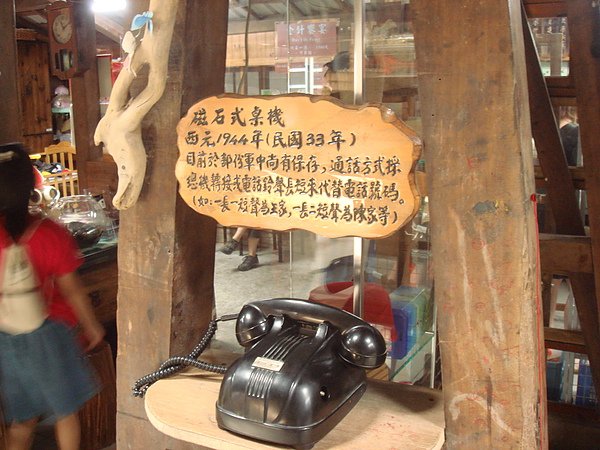 磁石式桌機
西元1944年(民國33年)
目前於部份軍中尚有保存,通話方式採
總機轉接或電話鈴聲長短來代替電話號碼。
(如:一長一短聲為王家,一長二短聲為陳家等)